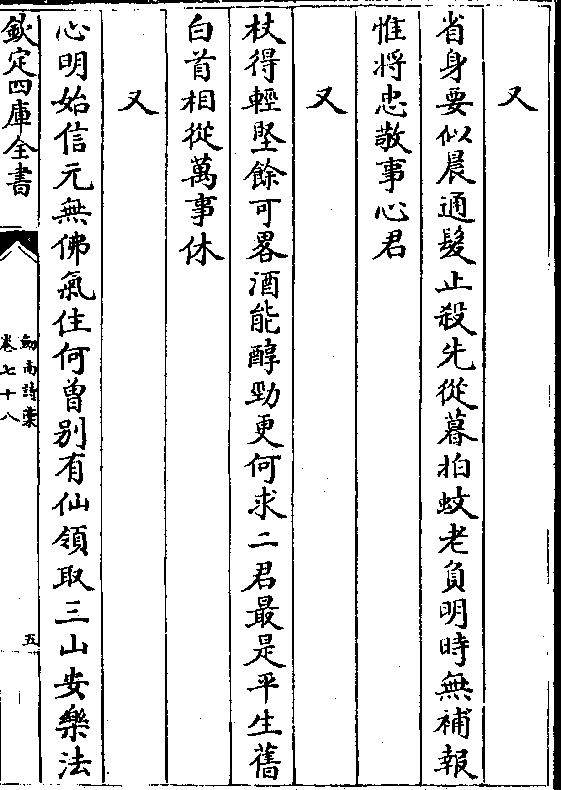 又
省身要似晨通髮止殺先從暮拍蚊老負明時無補報
惟將忠敬事心君
又
杖得輕堅餘可畧酒能醇勁更何求二君最是平生舊
白首相從萬事休
又
心明始信元無佛氣住何曾别有仙領取三山安樂法
欽定四庫全書
劒南詩稾
卷七十八
五